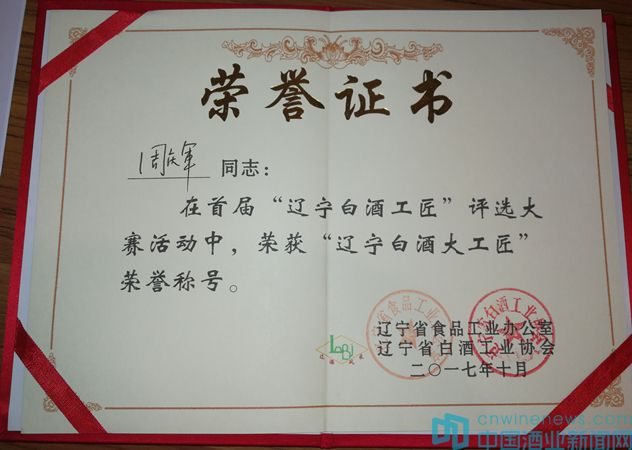 荣誉证书
周庆军 同志：
在首届“辽宁白酒工匠”评选大
赛活动中，荣获“辽宁白酒大工匠”
荣誉称号。
辽宁省食品工业办公室
辽宁省白酒工业协会
二〇一七年十月
cnwinenews.com
中国酒业新闻网